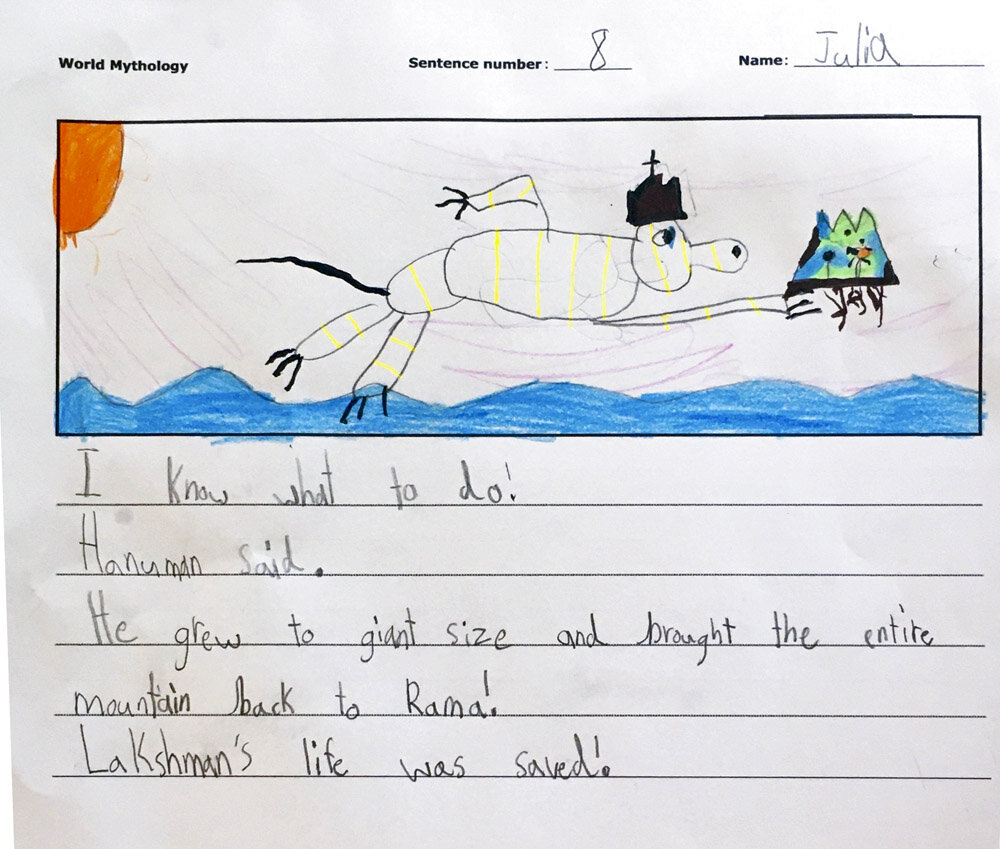 World Mythology Sentence number: 8 Name: Julia
I know what to do!
Hanuman said.
He grew to giant size and brought the entire
mountain back to Rama!
Lakshman's life was saved!